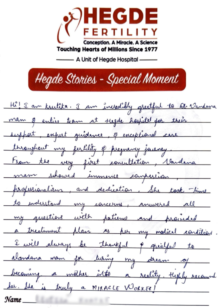 HEGDE
FERTILITY
Conception. A Miracle. A Science
Touching Hearts of Millions Since 1977
A Unit of Hegde Hospital
Hegde Stories - Special Moment
Hi! I am . I am incredibly grateful to Dr. Vandana
mam & entire team at Hegde hospital for their
support expert guidance & exceptional care
throughout my fertility & pregnancy journey.
From the very first consultation Vandana
mam showed immense compassion
professionalism and dedication. She took time
to understand my concerns, answered all
my questions with patience and provided
a treatment plan as per my medical condition.
I will always be thankful & grateful to
Vandana mam for turning my dream of
becoming a mother into a reality. Highly recommend
her She is truly a MIRACLE WORKER!
Name